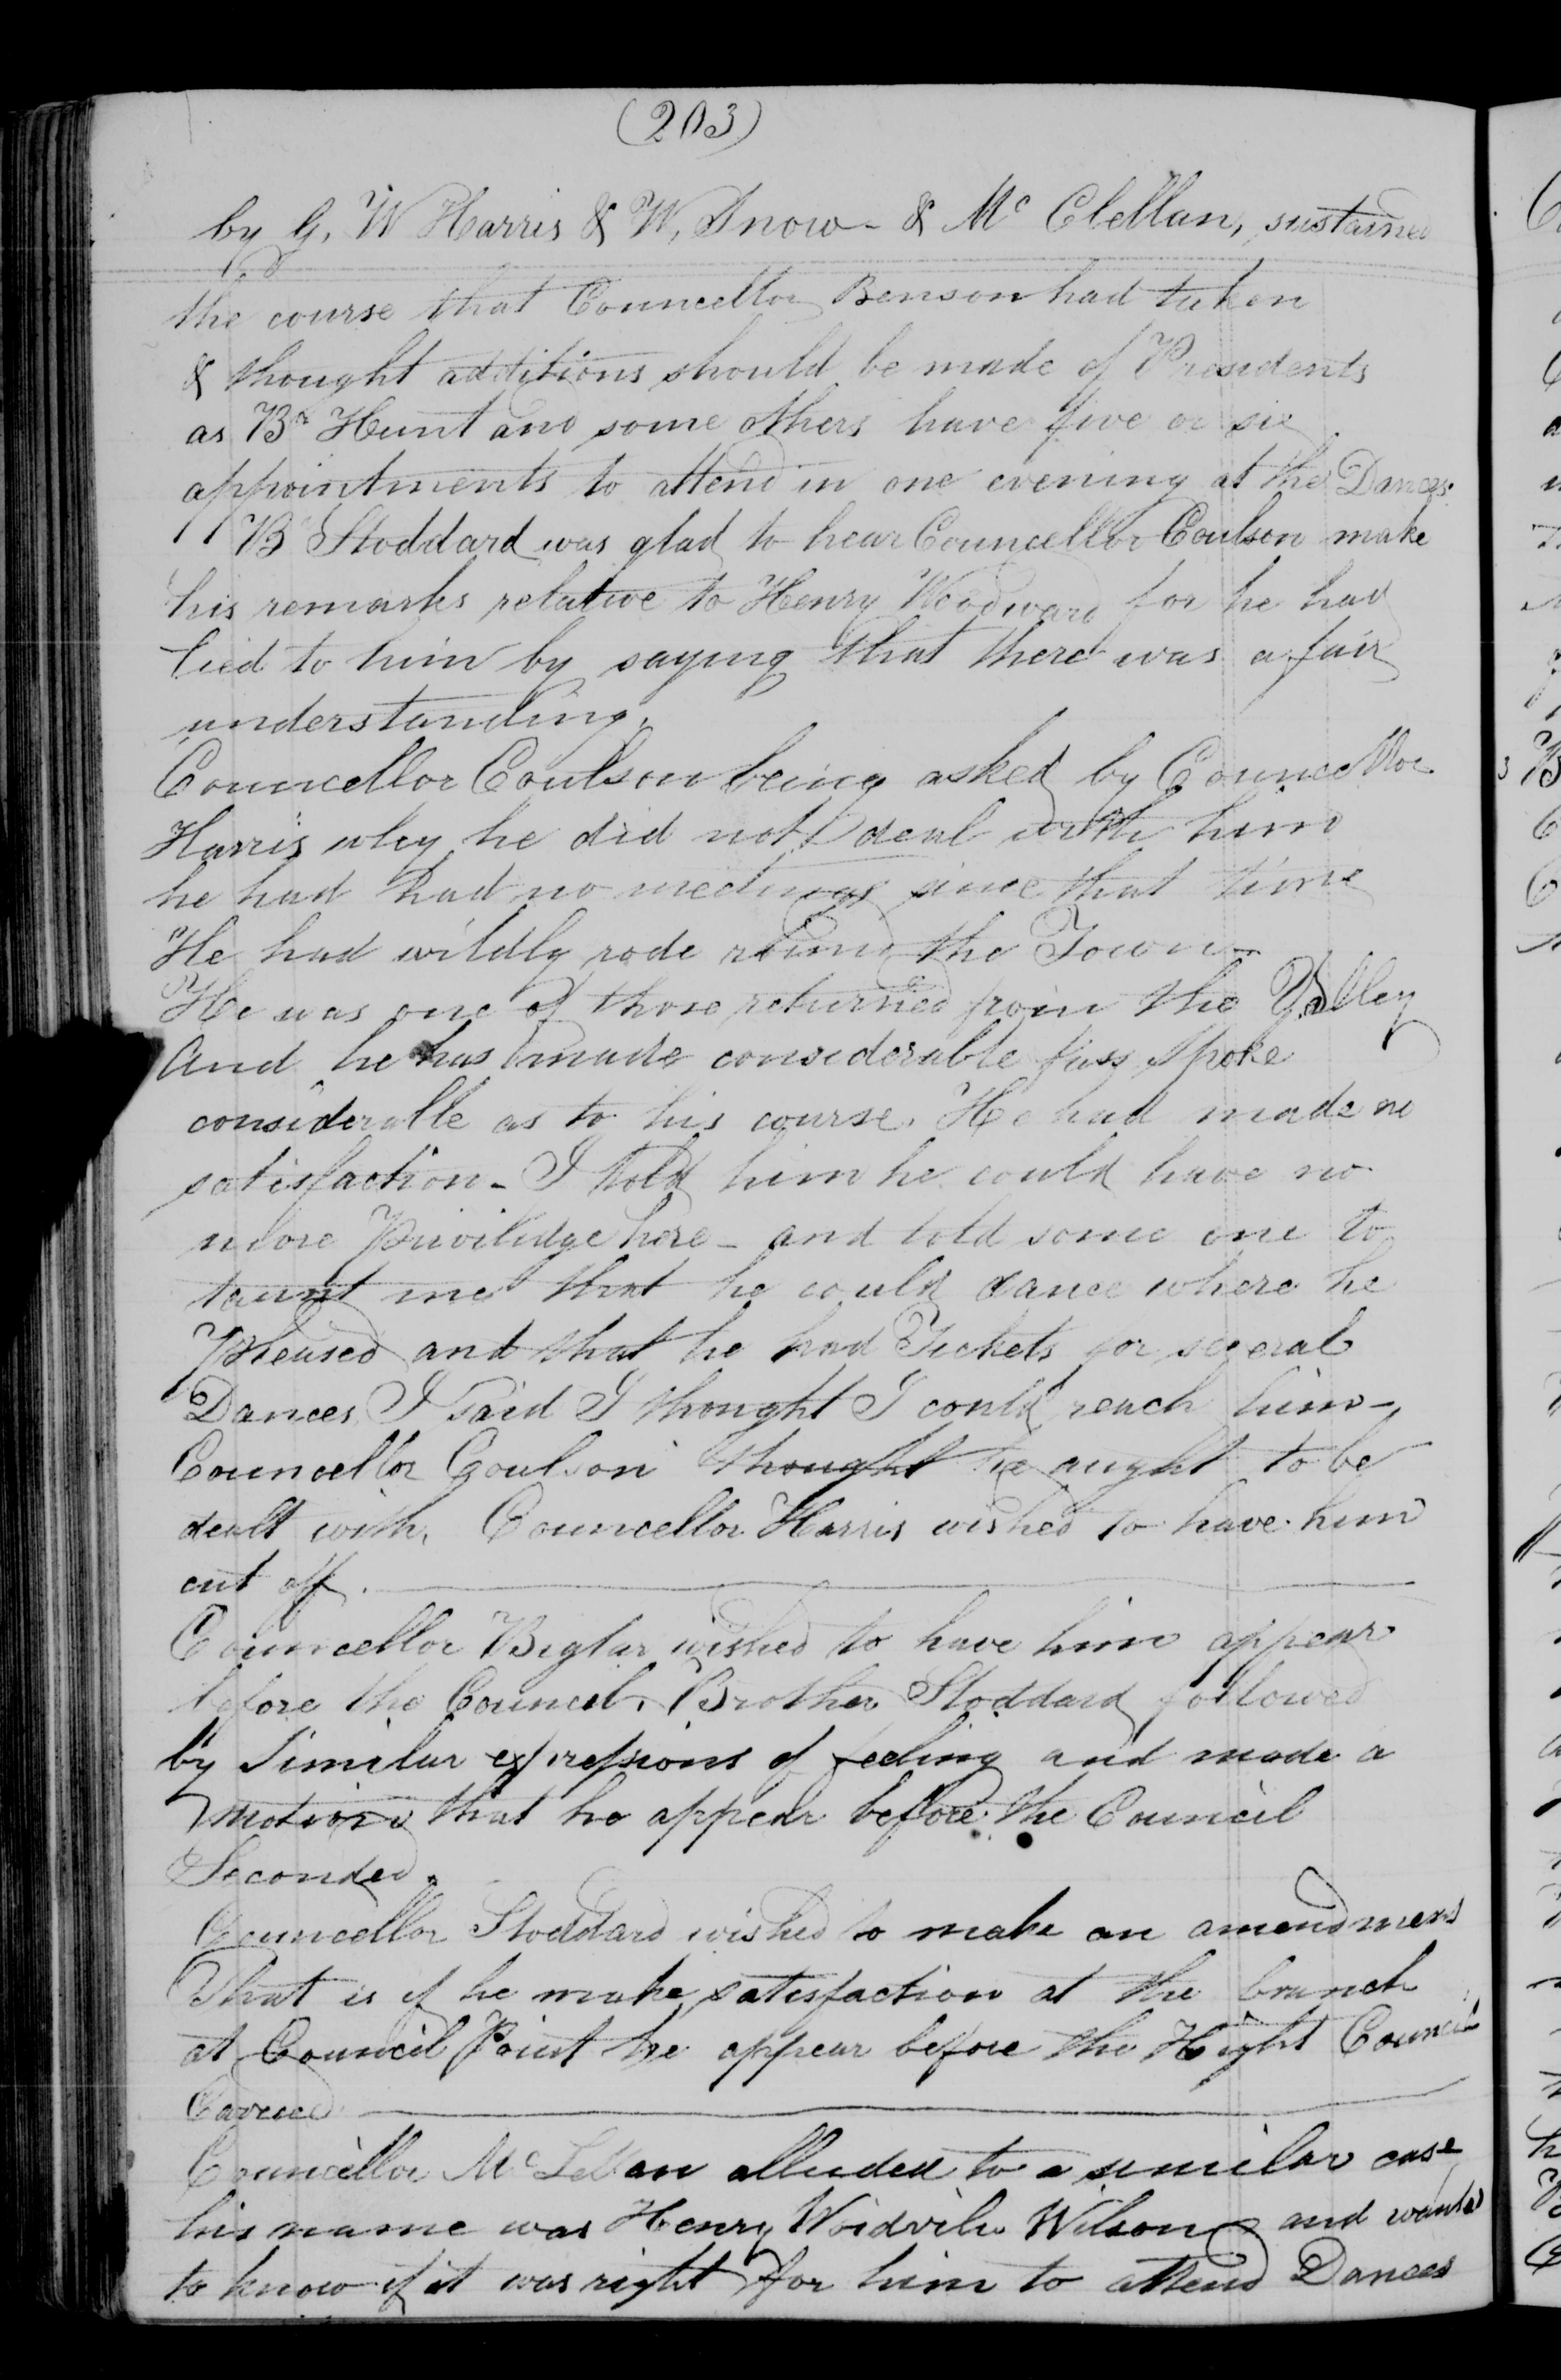 (203)
by G. W Harris & W, Snow - & Mc Clellan, sustained
the course that Councellor Benson had taken
& thought additions should be made of Presidents
as Br Hunt and some others have five or six
appointments to attend in one evening at the Dances.
Br Stoddard was glad to hear Councellor Coulson make
his remarks relative to Henry Woodward for he had
lied to him by saying that there was a fair
understanding.
Councellor Coulson being asked by Councellor
Harris why he did not deal with him
he had had no meetings since that time
He had wildly rode round the Town
He was one of those returned from the Valley
And he has made considerable fuss spoke
considerable as to his course. He had made no
satisfaction - I told him he could have no
more Priviledge here - and told some one to
taunt me that he could dance where he
pleased and that he had Tickets for several
Dances I said I thought I could reach him -
Councellor Coulson thought he aught to be
dealt with. Councellor Harris wished to have him
cut off.
Councellor Biglar wished to have him appear
before the Council. Brother Stoddard followed
by Similar expressions of feeling and made a
motion that he appear before the Council
Seconded.
Councellor Stoddard wished to make an amendment
That is if he make satisfaction at the branch
at Council Point he appear before the Hight Council
Councellor Mc Lellan alluded to a similar case
his name was Henry Wilson and wanted
to know if it was right for him to attend Dances